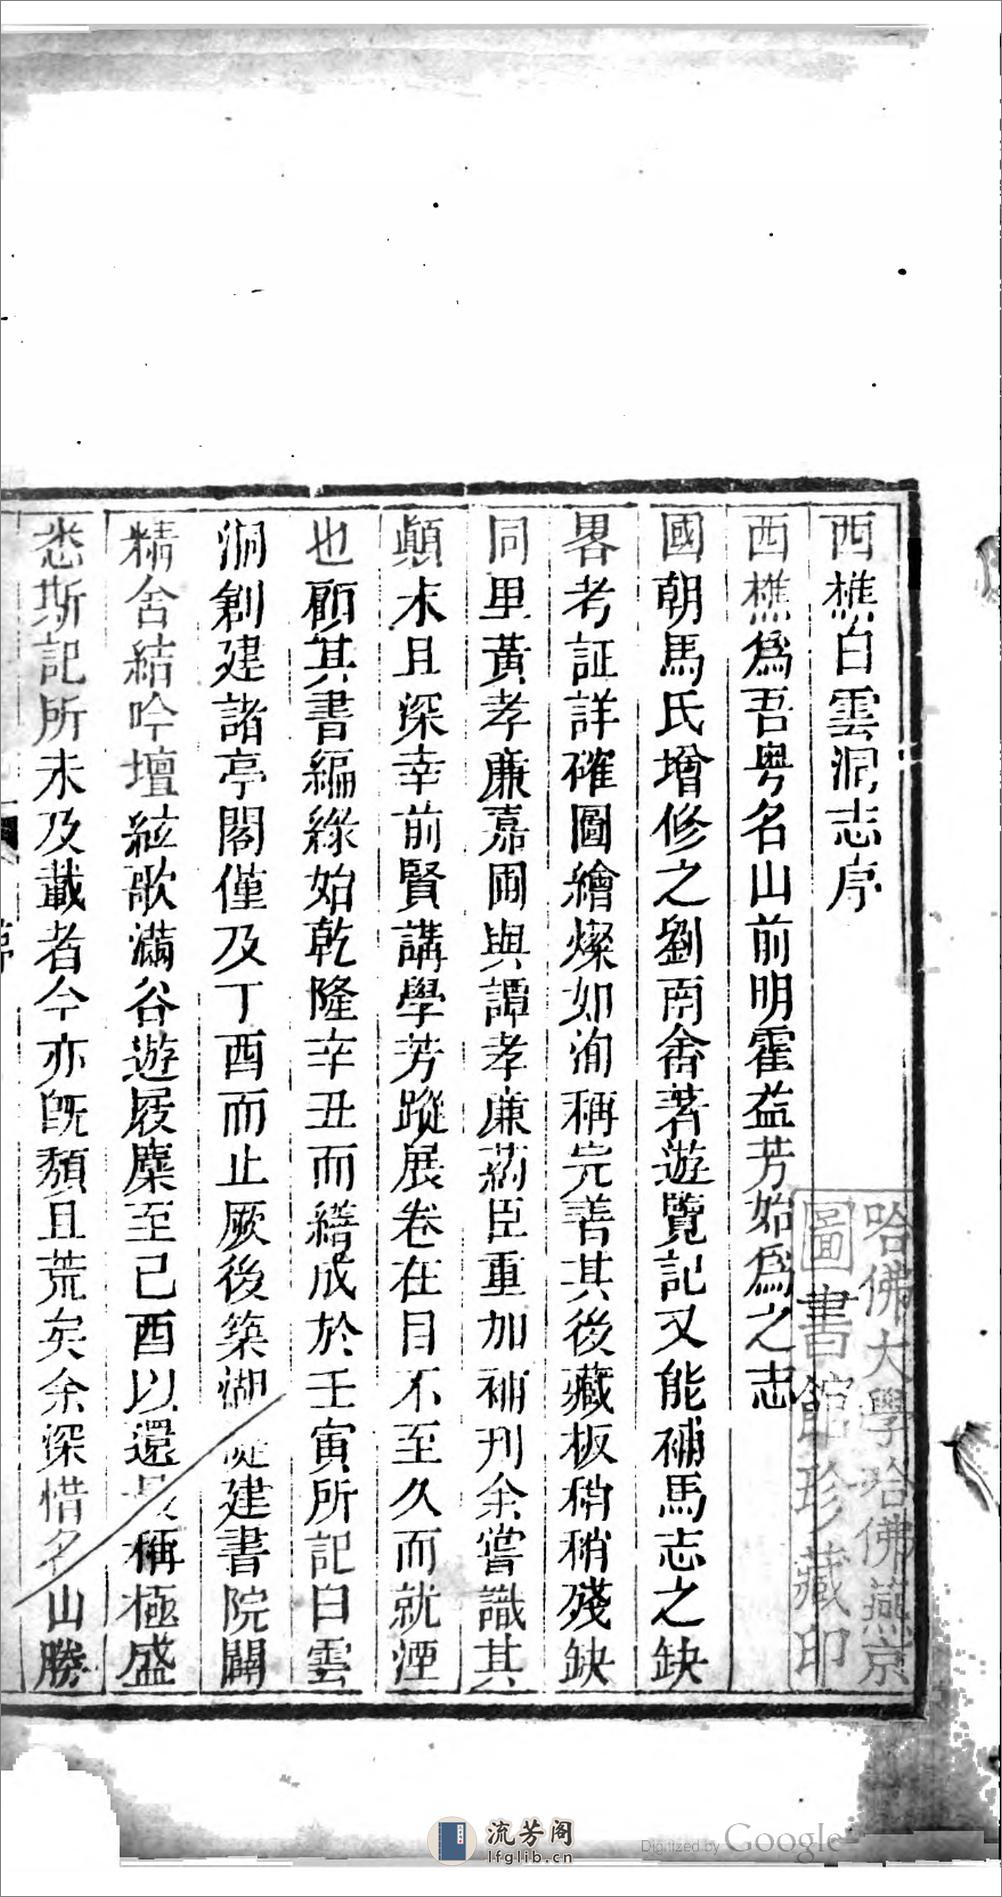 西樵白雲洞志序
西樵爲吾粤名山前明霍益芳始爲之志
國朝馬氏增修之劉南舍著遊覽記又能補馬志之缺
畧考証詳確圖繪燦如洵稱完善其後藏板稍稍殘缺
同里黃孝廉嘉圃與譚孝廉葯臣重加補刋余嘗識其
顛末且深幸前賢講學芳蹤展卷在目不至久而就湮
也顧其書編緣始乾隆辛丑而繕成於壬寅所記白雲
洞創建諸亭閣僅及丁酉而止厥後築湖建書院闢
精舍結吟壇絃歌滿谷遊屐麇至己酉以還稱極盛
悉斯記所未及載者今亦旣頹且荒矣余深惜名山勝
序
哈佛大學哈佛燕京
圖書館珍藏印
流芳阁
lfglib.cn
Digitized by Google